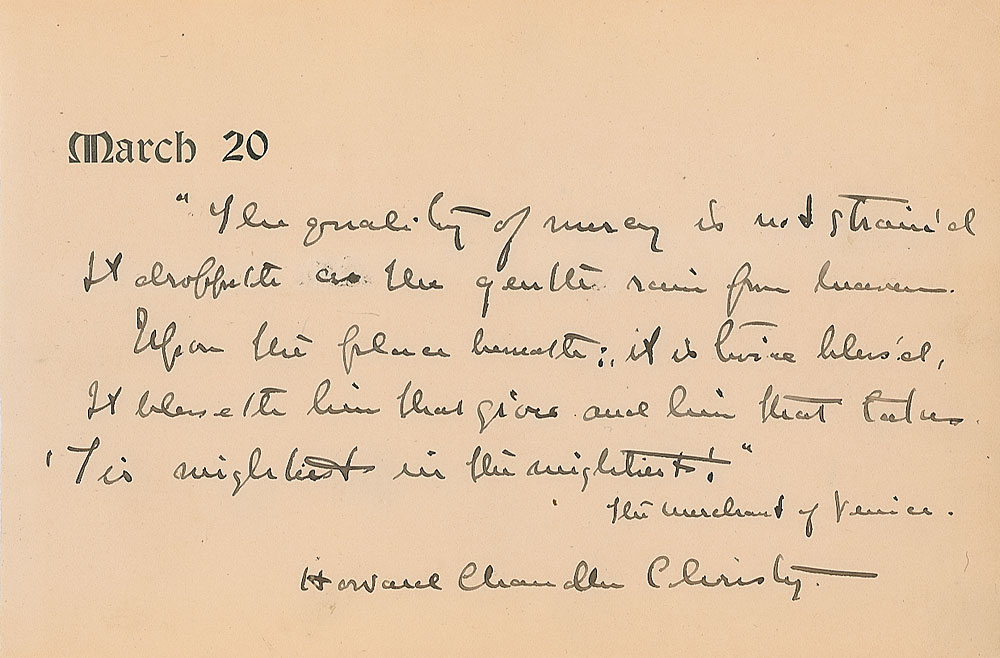 March 20
"The quality of mercy is not strain'd
It droppeth as the gentle rain from heaven.
Upon the place beneath: it is twice bless'd,
It blesseth him that gives and him that takes.
'Tis mightiest in the mightiest!"
The Merchant of Venice.
Howard Chandler Christy.